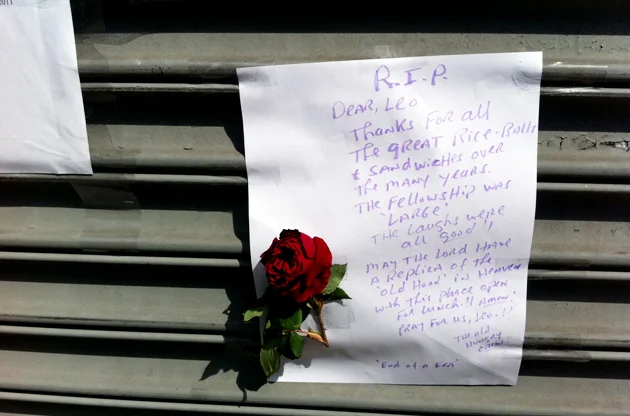 2011
R.I.P.
DEAR, LEO
THANKS FOR all
THE GREAT RICE-BALLS
& SANDWICHES OVER
THE MANY YEARS.
THE FELLOWSHIP WAS
'LARGE',
THE LAUGHS WERE
all good!,
MAY THE LORD HAVE
A REPLICA OF THE
'OLD HOOD' IN HEAVEN
with THIS PLACE OPEN
FOR LUNCH!! Amen.
PRAY FOR US, LEO.!!
THE OLD
HUNGRY
"End of a ERA"